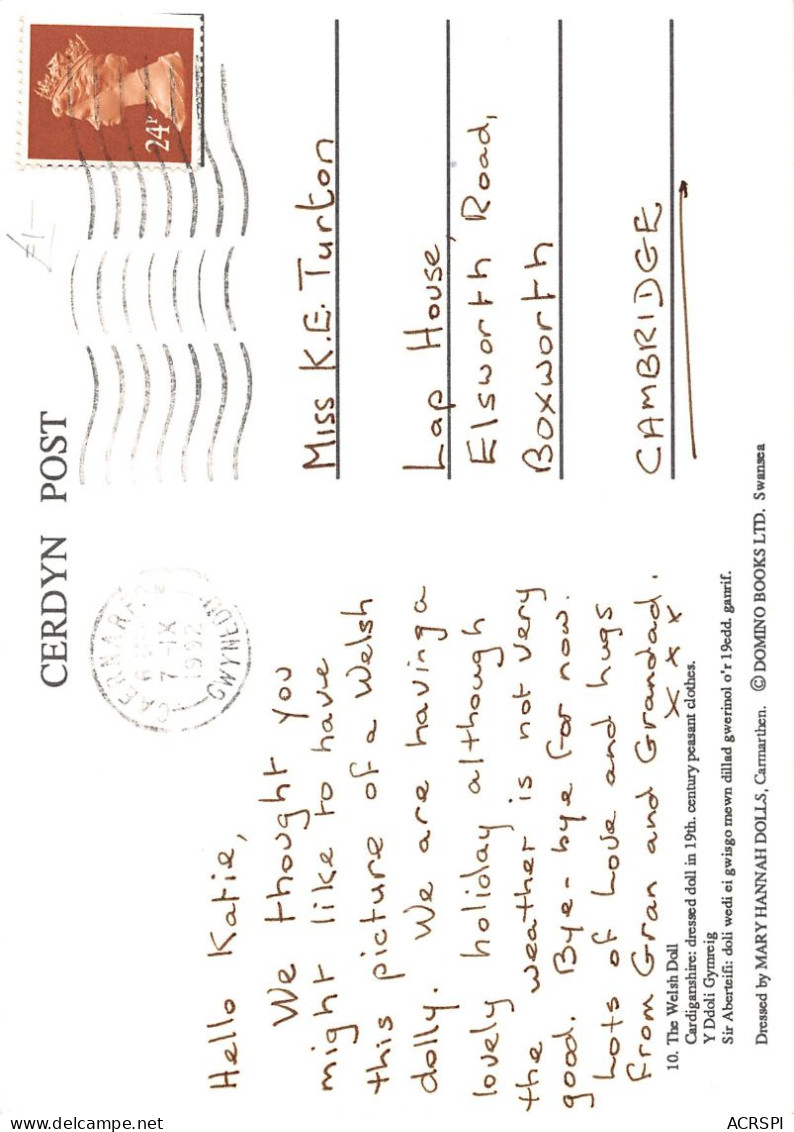 CERDYN POST
24P
£1-
CAERNARFON
7-IX
1992
GWYNEDD
Hello Katie,
We thought you
might like to have
this picture of a Welsh
dolly. We are having a
lovely holiday although
the weather is not very
good. Bye-bye for now.
Lots of Love and hugs
From Gran and Grandad.
x x x
Miss K.E. Turton
Lap House,
Elsworth Road,
Boxworth
CAMBRIDGE
10. The Welsh Doll
Cardiganshire: dressed doll in 19th. century peasant clothes.
Y Ddoli Gymreig
Sir Aberteifi: doli wedi ei gwisgo mewn dillad gwerinol o'r 19edd. ganrif.
Dressed by MARY HANNAH DOLLS, Carmarthen. © DOMINO BOOKS LTD. Swansea
ACRSPI